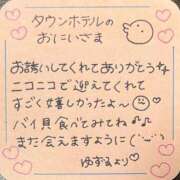 タウンホテルの
おにいさま
お誘いしてくれてありがとうな
ニコニコで迎えてくれて
すごく嬉しかったよ〜
バイ貝食べてみてね♡
また会えますように(¨̮)
ゆずるより♡